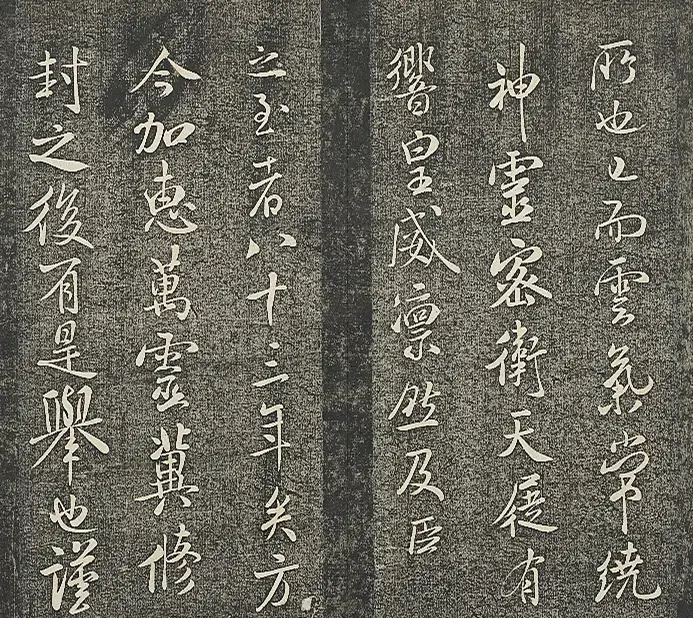 所也上而雲氣常繞
神靈密衛天履有
響皇威凛然及臣
之至者八十三年矣方
今加惠萬靈冀修
封之後有是舉也謹